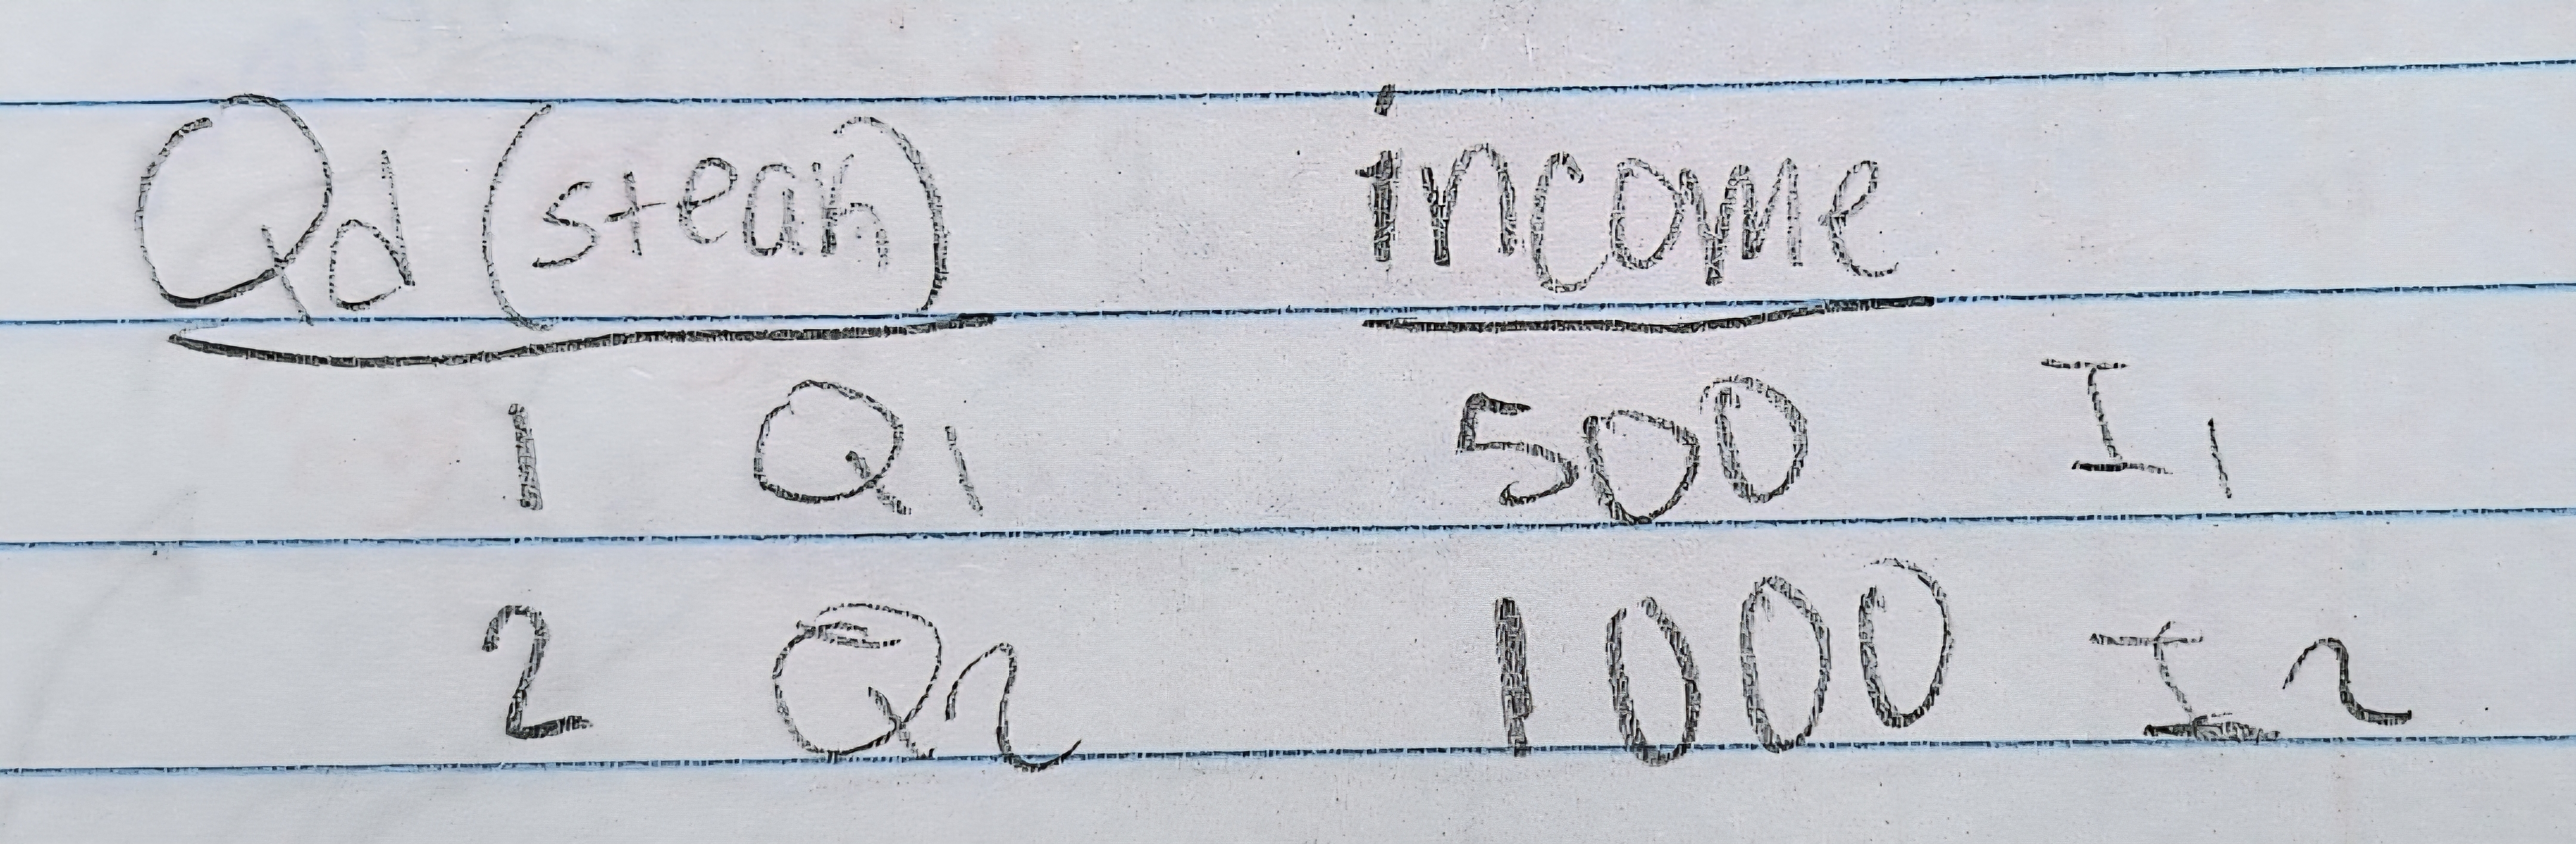 Qd (steak) income
1 Q1 500 I1
2 Q2 1000 I2